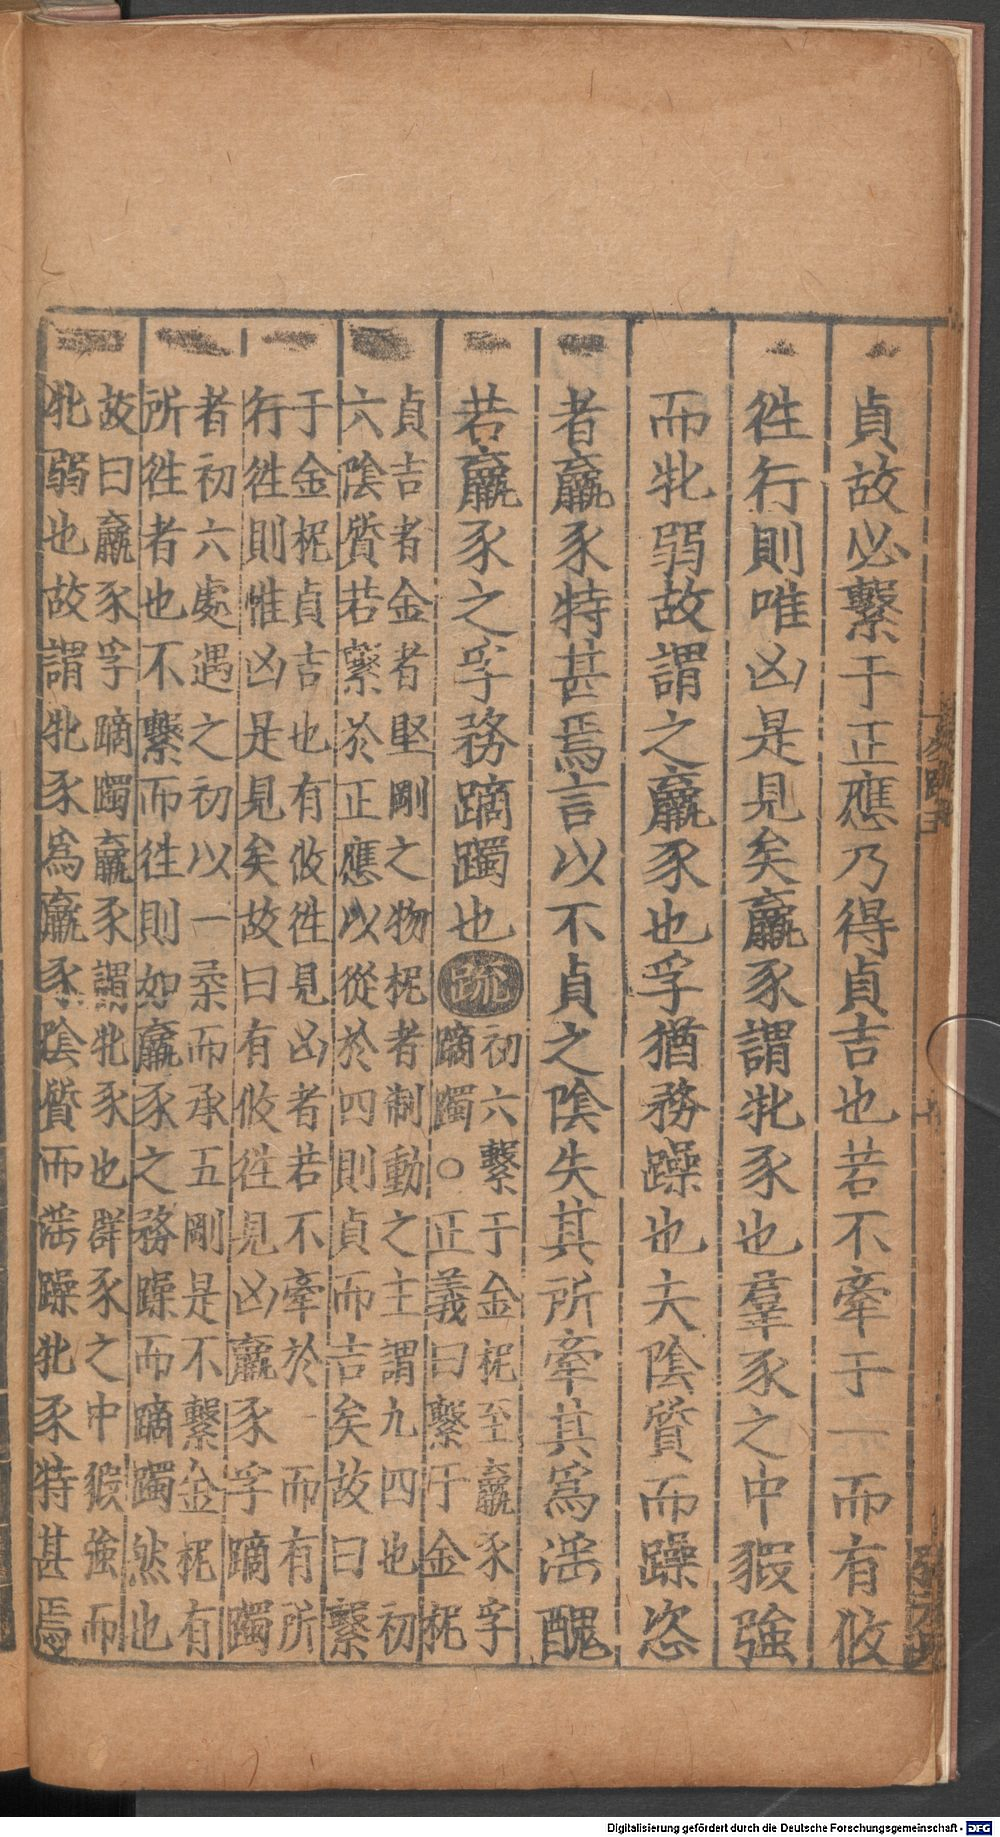 貞故必繫于正應乃得貞吉也若不牽于一而有攸
徃行則唯凶是見矣羸豕謂牝豕也羣豕之中豭強
而牝弱故謂之羸豕也孚猶務躁也夫陰質而躁恣
者羸豕特甚焉言以不貞之陰失其所牽其為滛醜
若羸豕之孚務蹢躅也
疏
初六繫于金柅至羸豕孚
蹢躅○正義曰繫于金柅
貞吉者金者堅剛之物柅者制動之主謂九四也初
六陰質若繫於正應以從於四則貞而吉矣故曰繫
于金柅貞吉也有攸徃見凶者若不牽於一而有所
行徃則惟凶是見矣故曰有攸徃見凶羸豕孚蹢躅
者初六處遇之初以一柔而承五剛是不繫金柅有
所徃者也不繫而徃則如羸豕之務躁而蹢躅然也
故曰羸豕孚蹢躅羸豕謂牝豕也群豕之中豭強而
牝弱也故謂牝豕為羸豕陰質而滛躁牝豕特甚焉
Digitalisierung gefördert durch die Deutsche Forschungsgemeinschaft - DFG